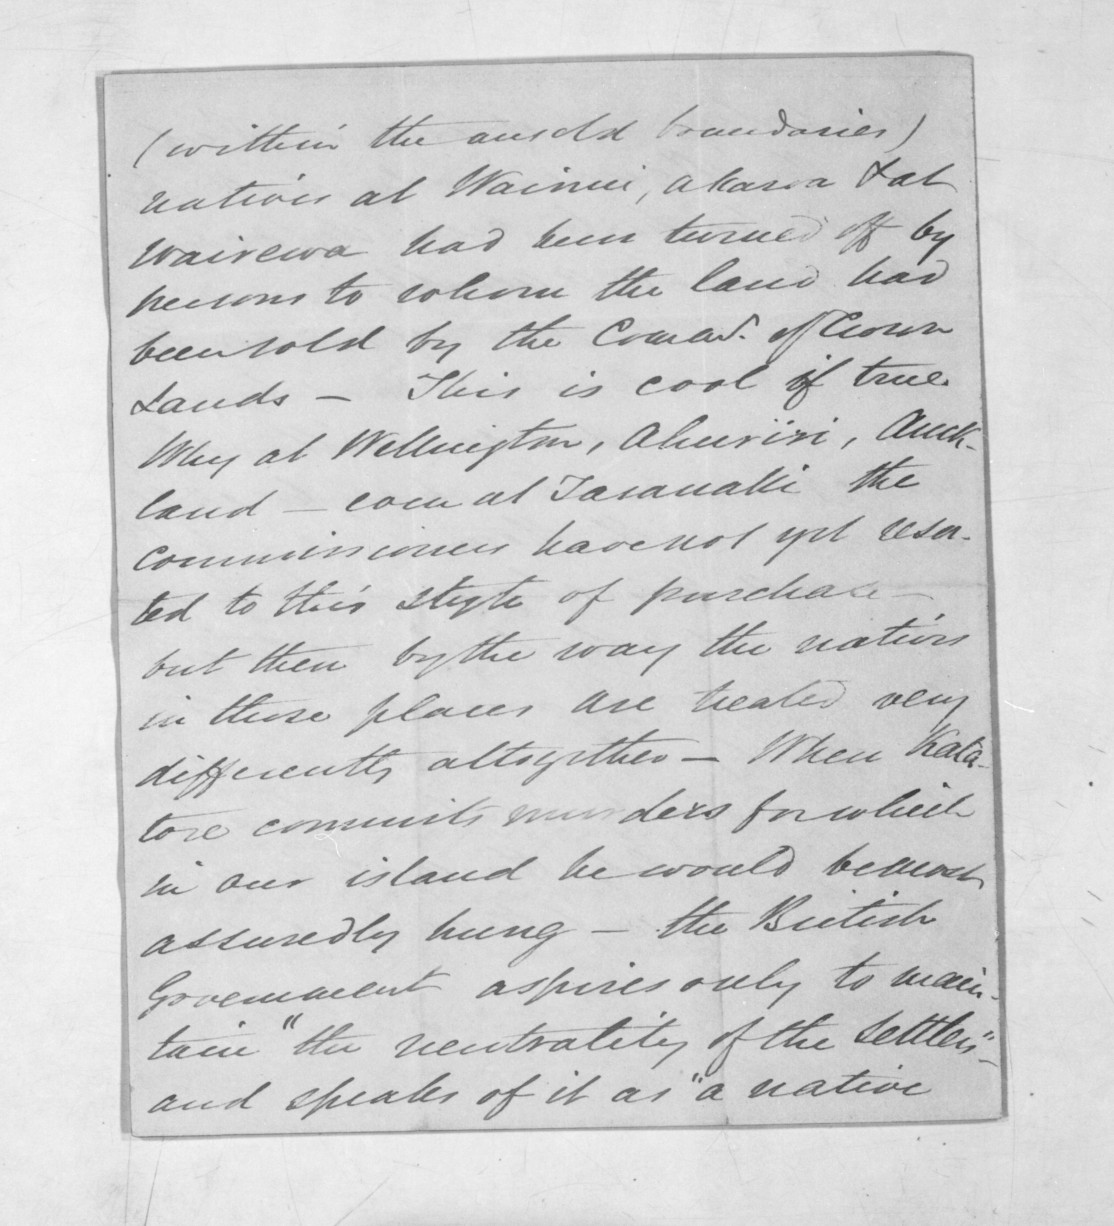 (within the unsold boundaries)
natives at Wainui, Akaroa & at
Wairewa had been turned off by
persons to whom the land had
been sold by the Commr. of Crown
Lands – This is cool if true
Why at Wellington, Ahuriri, Auck-
land – even at Taranaki the
Commissioners have not yet resor-
ted to this style of purchase –
but then by the way the natives
in those places are treated very
differently altogether – When Kata-
tore commits murders for which
in our island he would be most
assuredly hung – the British
Government aspires only to main-
tain "the neutrality of the settlers" –
and speaks of it as "a native